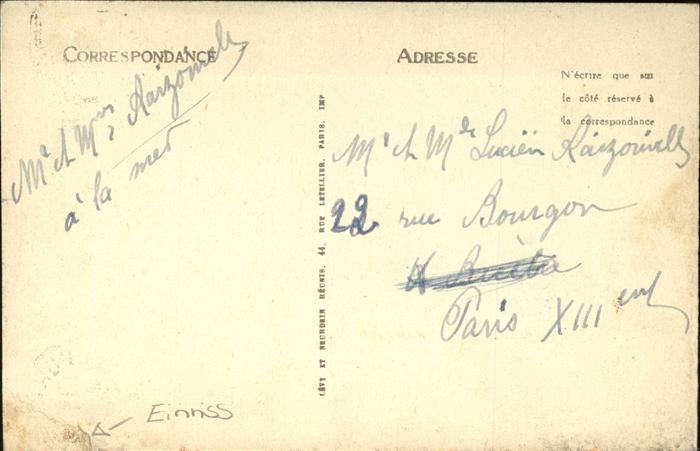 CORRESPONDANCE
Mr et Mme
à la mer
LÉVY ET NEURDEIN RÉUNIS, 44, RUE LETELLIER, PARIS, IMP
ADRESSE
N'écrire que sur
le côté réservé à
la correspondance
Mr et Mde Lucien
22 rue Bourgon
Paris XIII